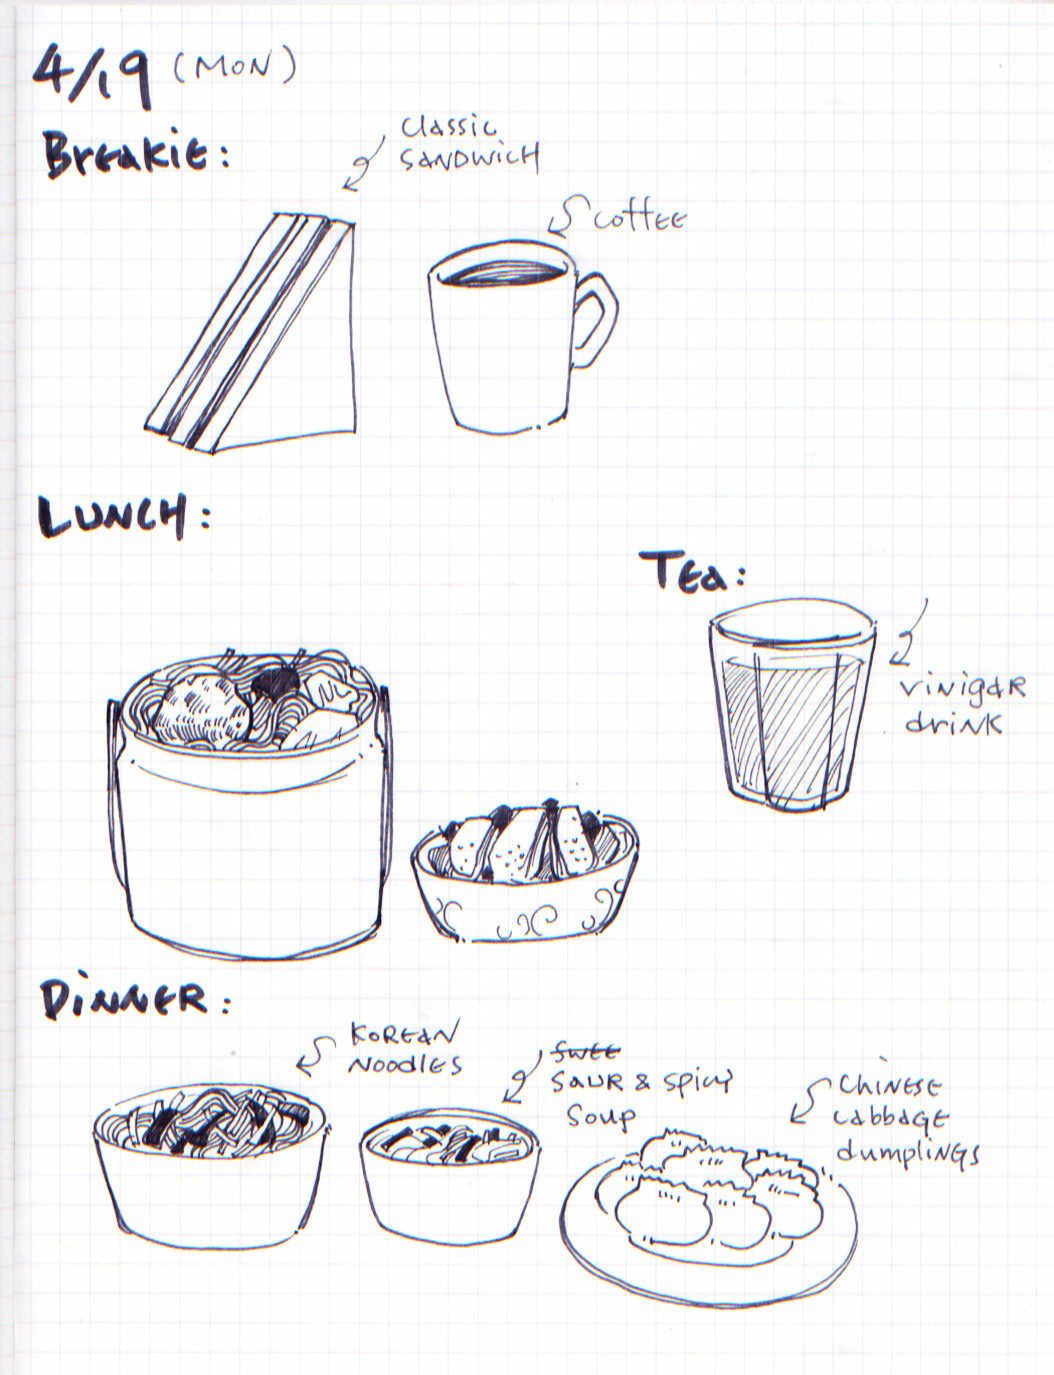 4/19 (MON)
Breakie:
Classic
SANDWICH
COFFEE
LUNCH:
Tea:
vinigar
drink
DINNER:
KOREAN
NOODLES
Swee
SAUR & SPICY
Soup
CHINESE
cabbage
dumplings